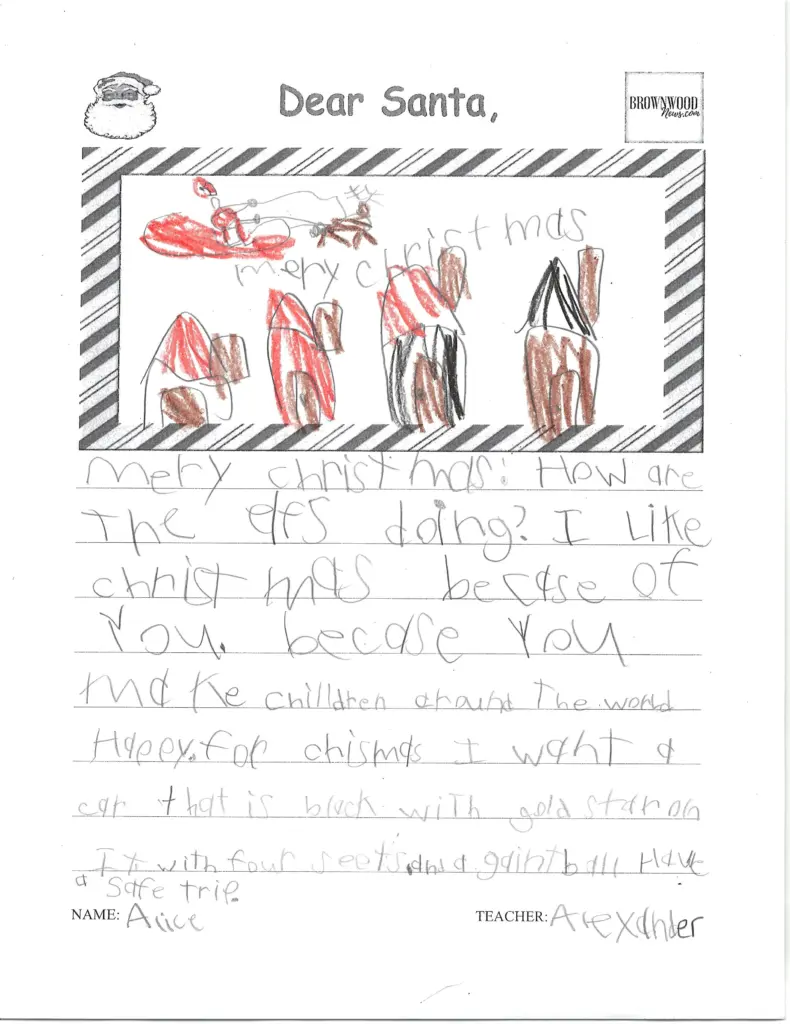 Dear Santa,
BROWNWOOD
News.com
mery christmas
mery christmas! How are
the elfs doing? I Like
christmas becase of
You. becase You
make chilldren around The world
Happy. for chismas I want a
car that is black with gold star on
It with four seets and a gaint ball Have
a safe trip.
NAME: Alice
TEACHER: Alexander